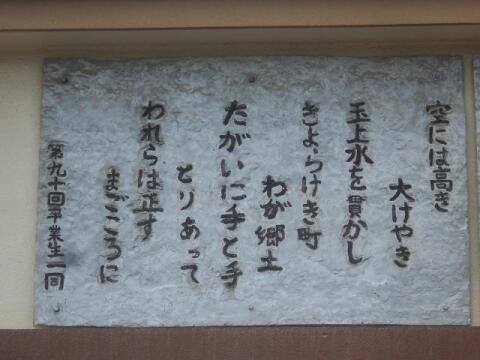 空には高き
大けやき
玉上水を貫かし
きよらけき町
わが郷土
たがいに手と手
とりあって
われらは正す
まごころに
(第九十回卒業生一同